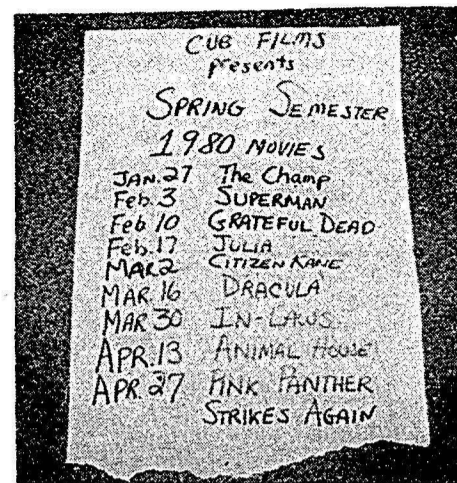 CUB FILMS
presents
SPRING SEMESTER
1980 MOVIES
JAN. 27 The Champ
Feb. 3 SUPERMAN
Feb 10 GRATEFUL DEAD
Feb. 17 JULIA
MAR 2 CITIZEN KANE
MAR. 16 DRACULA
MAR 30 IN-LAWS
APR. 13 ANIMAL HOUSE
APR. 27 PINK PANTHER
STRIKES AGAIN